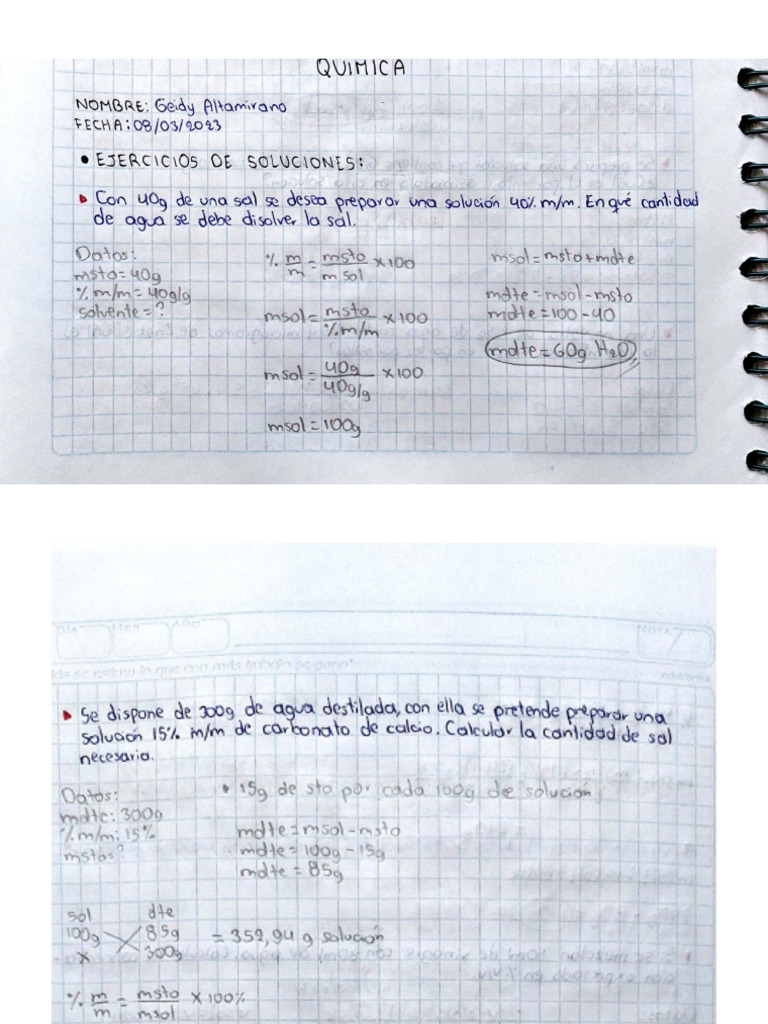 QUIMICA
NOMBRE: Geidy Altamirano
FECHA: 08/03/2023
• EJERCICIOS DE SOLUCIONES:
Con 40g de una sal se desea preparar una solución 40% m/m. En qué cantidad
de agua se debe disolver la sal.
Datos:
msto = 40g
% m/m = 40g/g
solvente = ?
% m/m = msto/msol x100
msol = msto/%m/m x100
msol = 40g/40g/g x100
msol = 100g
msol = msto + mdte
mdte = msol - msto
mdte = 100 - 40
mdte = 60g H2O
Se dispone de 300g de agua destilada, con ella se pretende preparar una
solución 15% m/m de carbonato de calcio. Calcular la cantidad de sal
necesaria.
Datos:
mdte: 300g
% m/m: 15%
msto=?
• 15g de sto por cada 100g de solución
mdte = msol - msto
mdte = 100g - 15g
mdte = 85g
sol dte
100g 85g
x 300g
= 352,94 g solución
% m/m = msto/msol x 100%